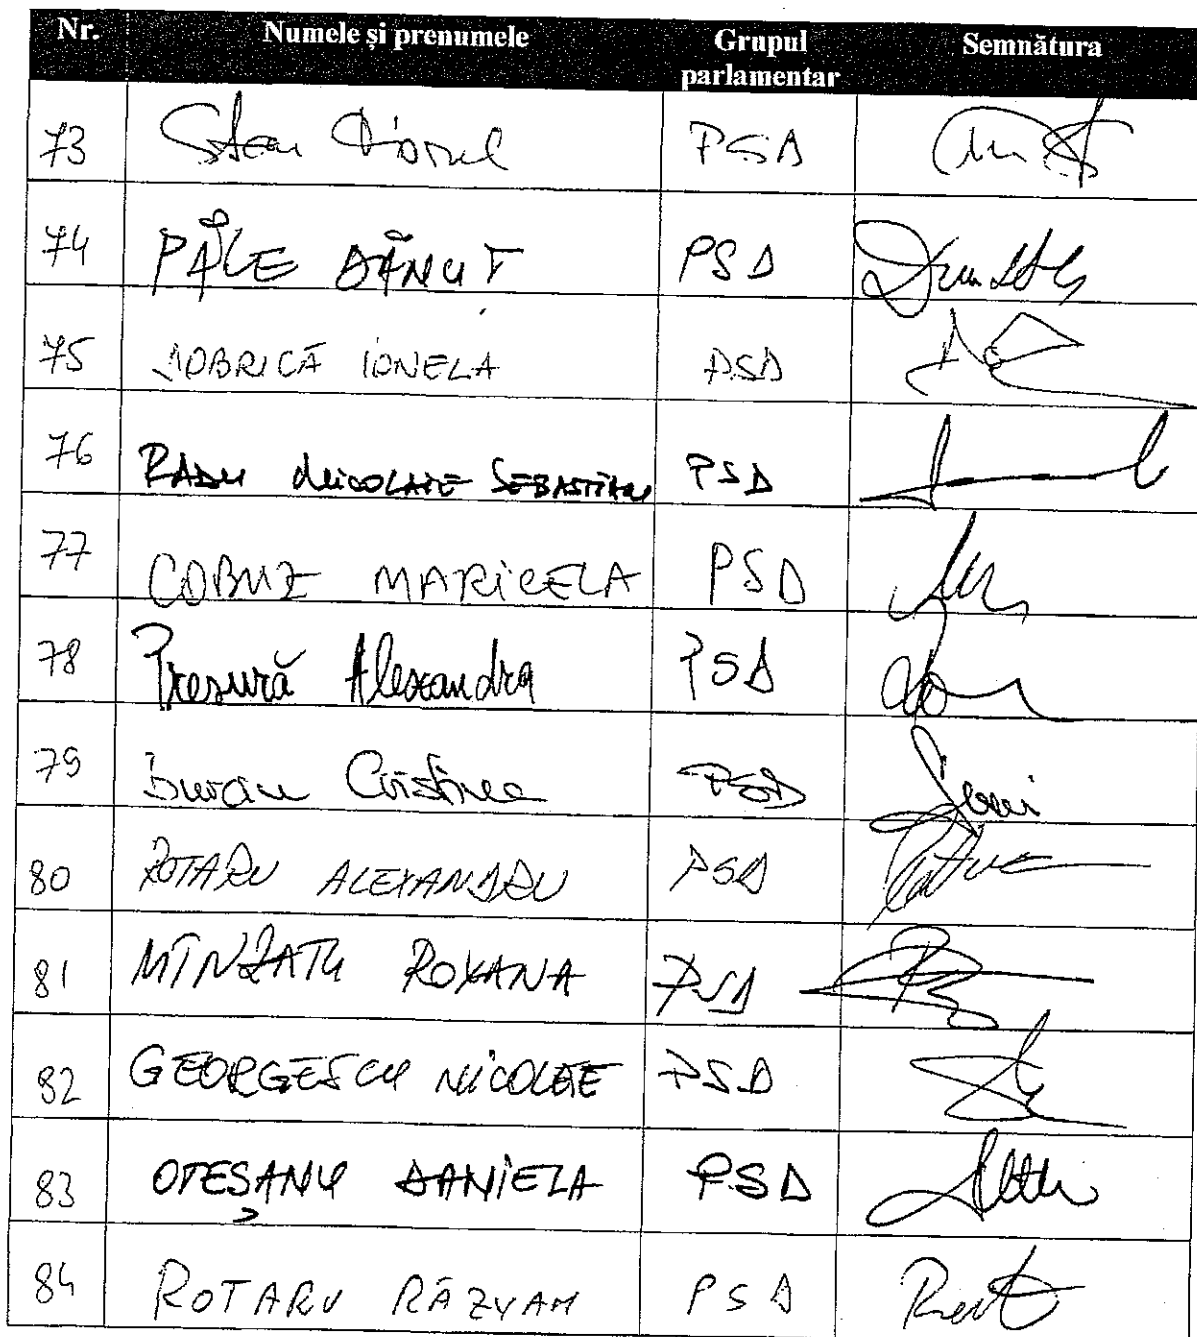 Nr. Numele și prenumele Grupul parlamentar Semnătura
73 Stan Viorel PSD
74 PĂLE DĂNUȚ PSD
75 DOBRICĂ IONELA PSD
76 RADU NICOLAIE SEBASTIAN PSD
77 COBUZ MARICELA PSD
78 Presură Alexandra PSD
79 Burciu Cristina PSD
80 ROTARU ALEXANDRU PSD
81 MÎNZATU ROXANA PSD
82 GEORGESCU NICOLAE PSD
83 OTEȘANU DANIELA PSD
84 ROTARU RĂZVAN PSD